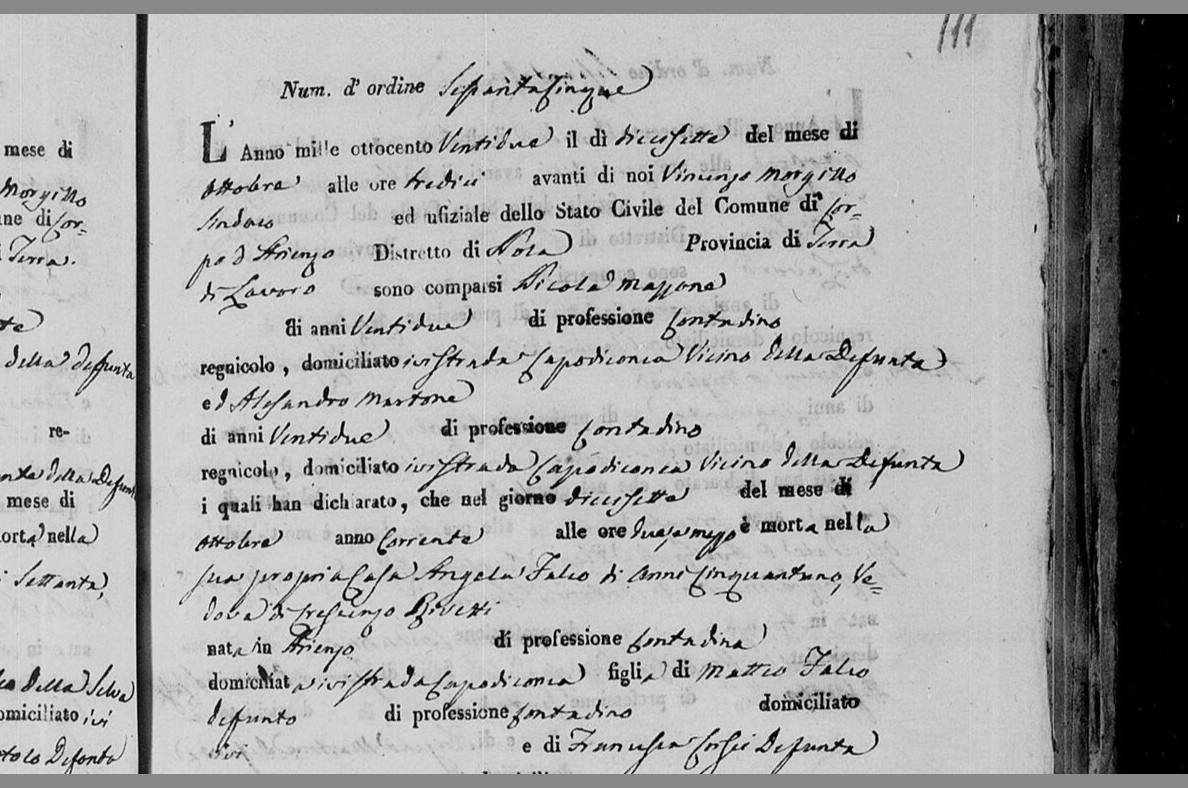 111
Num. d' ordine Sessantacinque
L' Anno mille ottocento Ventidue il dì diecisette del mese di
Ottobre alle ore tredici avanti di noi Vincenzo Morgillo
Sindaco ed ufiziale dello Stato Civile del Comune di Cor-
po d'Arienzo Distretto di Nola Provincia di Terra
di Lavoro sono comparsi Nicola Mazzone
di anni Ventidue di professione Contadino
regnicolo, domiciliato ivi Strada Capodiconca Vicino della Defunta
ed Alesandro Martone
di anni Ventidue di professione Contadino
regnicolo, domiciliato ivi Strada Capodiconca Vicino della Defunta
i quali han dichiarato, che nel giorno diecisette del mese di
Ottobre anno Corrente alle ore due, e mezzo è morta nella
sua propria Casa Angela Falco di anni Cinquantuno, Ve-
dova di Crescenzo
nata in Arienzo di professione Contadina
domiciliata ivi Strada Capodiconca figlia di Matteo Falco
defunto di professione Contadino domiciliato
ivi e di Francesca Defunta
mese di
Morgillo
ne di Cor-
i Terra
della defunta
re-
della Defunta
mese di
morta nella
Settanta,
della Selva
omiciliato ivi
Defonto